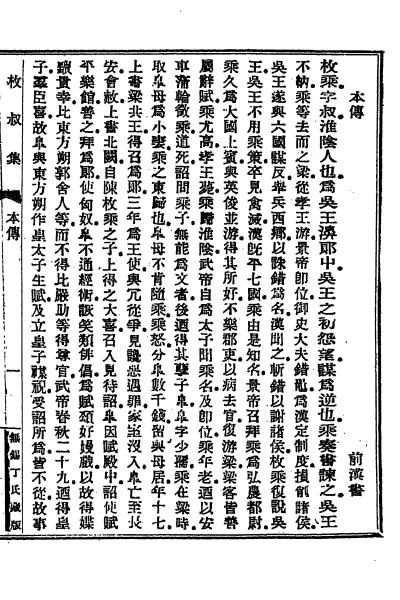 本傳
前漢書
枚乘字叔淮陰人也爲吳王濞郎中吳王之初怨望謀爲逆也乘奏書諫之吳王
不納乘等去而之梁從孝王游景帝卽位御史大夫錯爲漢定制度損削諸侯
吳王遂與六國謀反舉兵西鄉以誅錯爲名漢聞之斬錯以謝諸侯枚乘復說吳
王吳王不用乘策卒見禽滅漢旣平七國乘由是知名景帝召拜乘爲弘農都尉
乘久爲大國上賓與英俊並游得其所好不樂郡吏以病去官復游梁梁客皆善
屬辭賦乘尤高孝王薨乘歸淮陰武帝自爲太子聞乘名及卽位乘年老迺以安
車蒲輪徵乘道死詔問乘子無能爲文者後迺得其孽子皐皐字少孺乘在梁時
取皐母爲小妻乘之東歸也皐母不肯隨乘乘怒分皐數千錢留與母居年十七
上書梁共王得召爲郎三年爲王使與冗從爭見讒惡遇罪家室沒入皐亡至長
安會赦上書北闕自陳枚乘之子上得之大喜召入見待詔皐因賦殿中詔使賦
平樂館善之拜爲郎使匈奴皐不通經術詼笑類俳倡爲賦頌好嫚戲以故得媟
黷貴幸比東方朔郭舍人等而不得比嚴助等得尊官武帝春秋二十九迺得皇
子羣臣喜故皐與東方朔作皇太子生賦及立皇子禖祝受詔所爲皆不從故事
枚叔集
本傳
一
無錫丁氏藏版